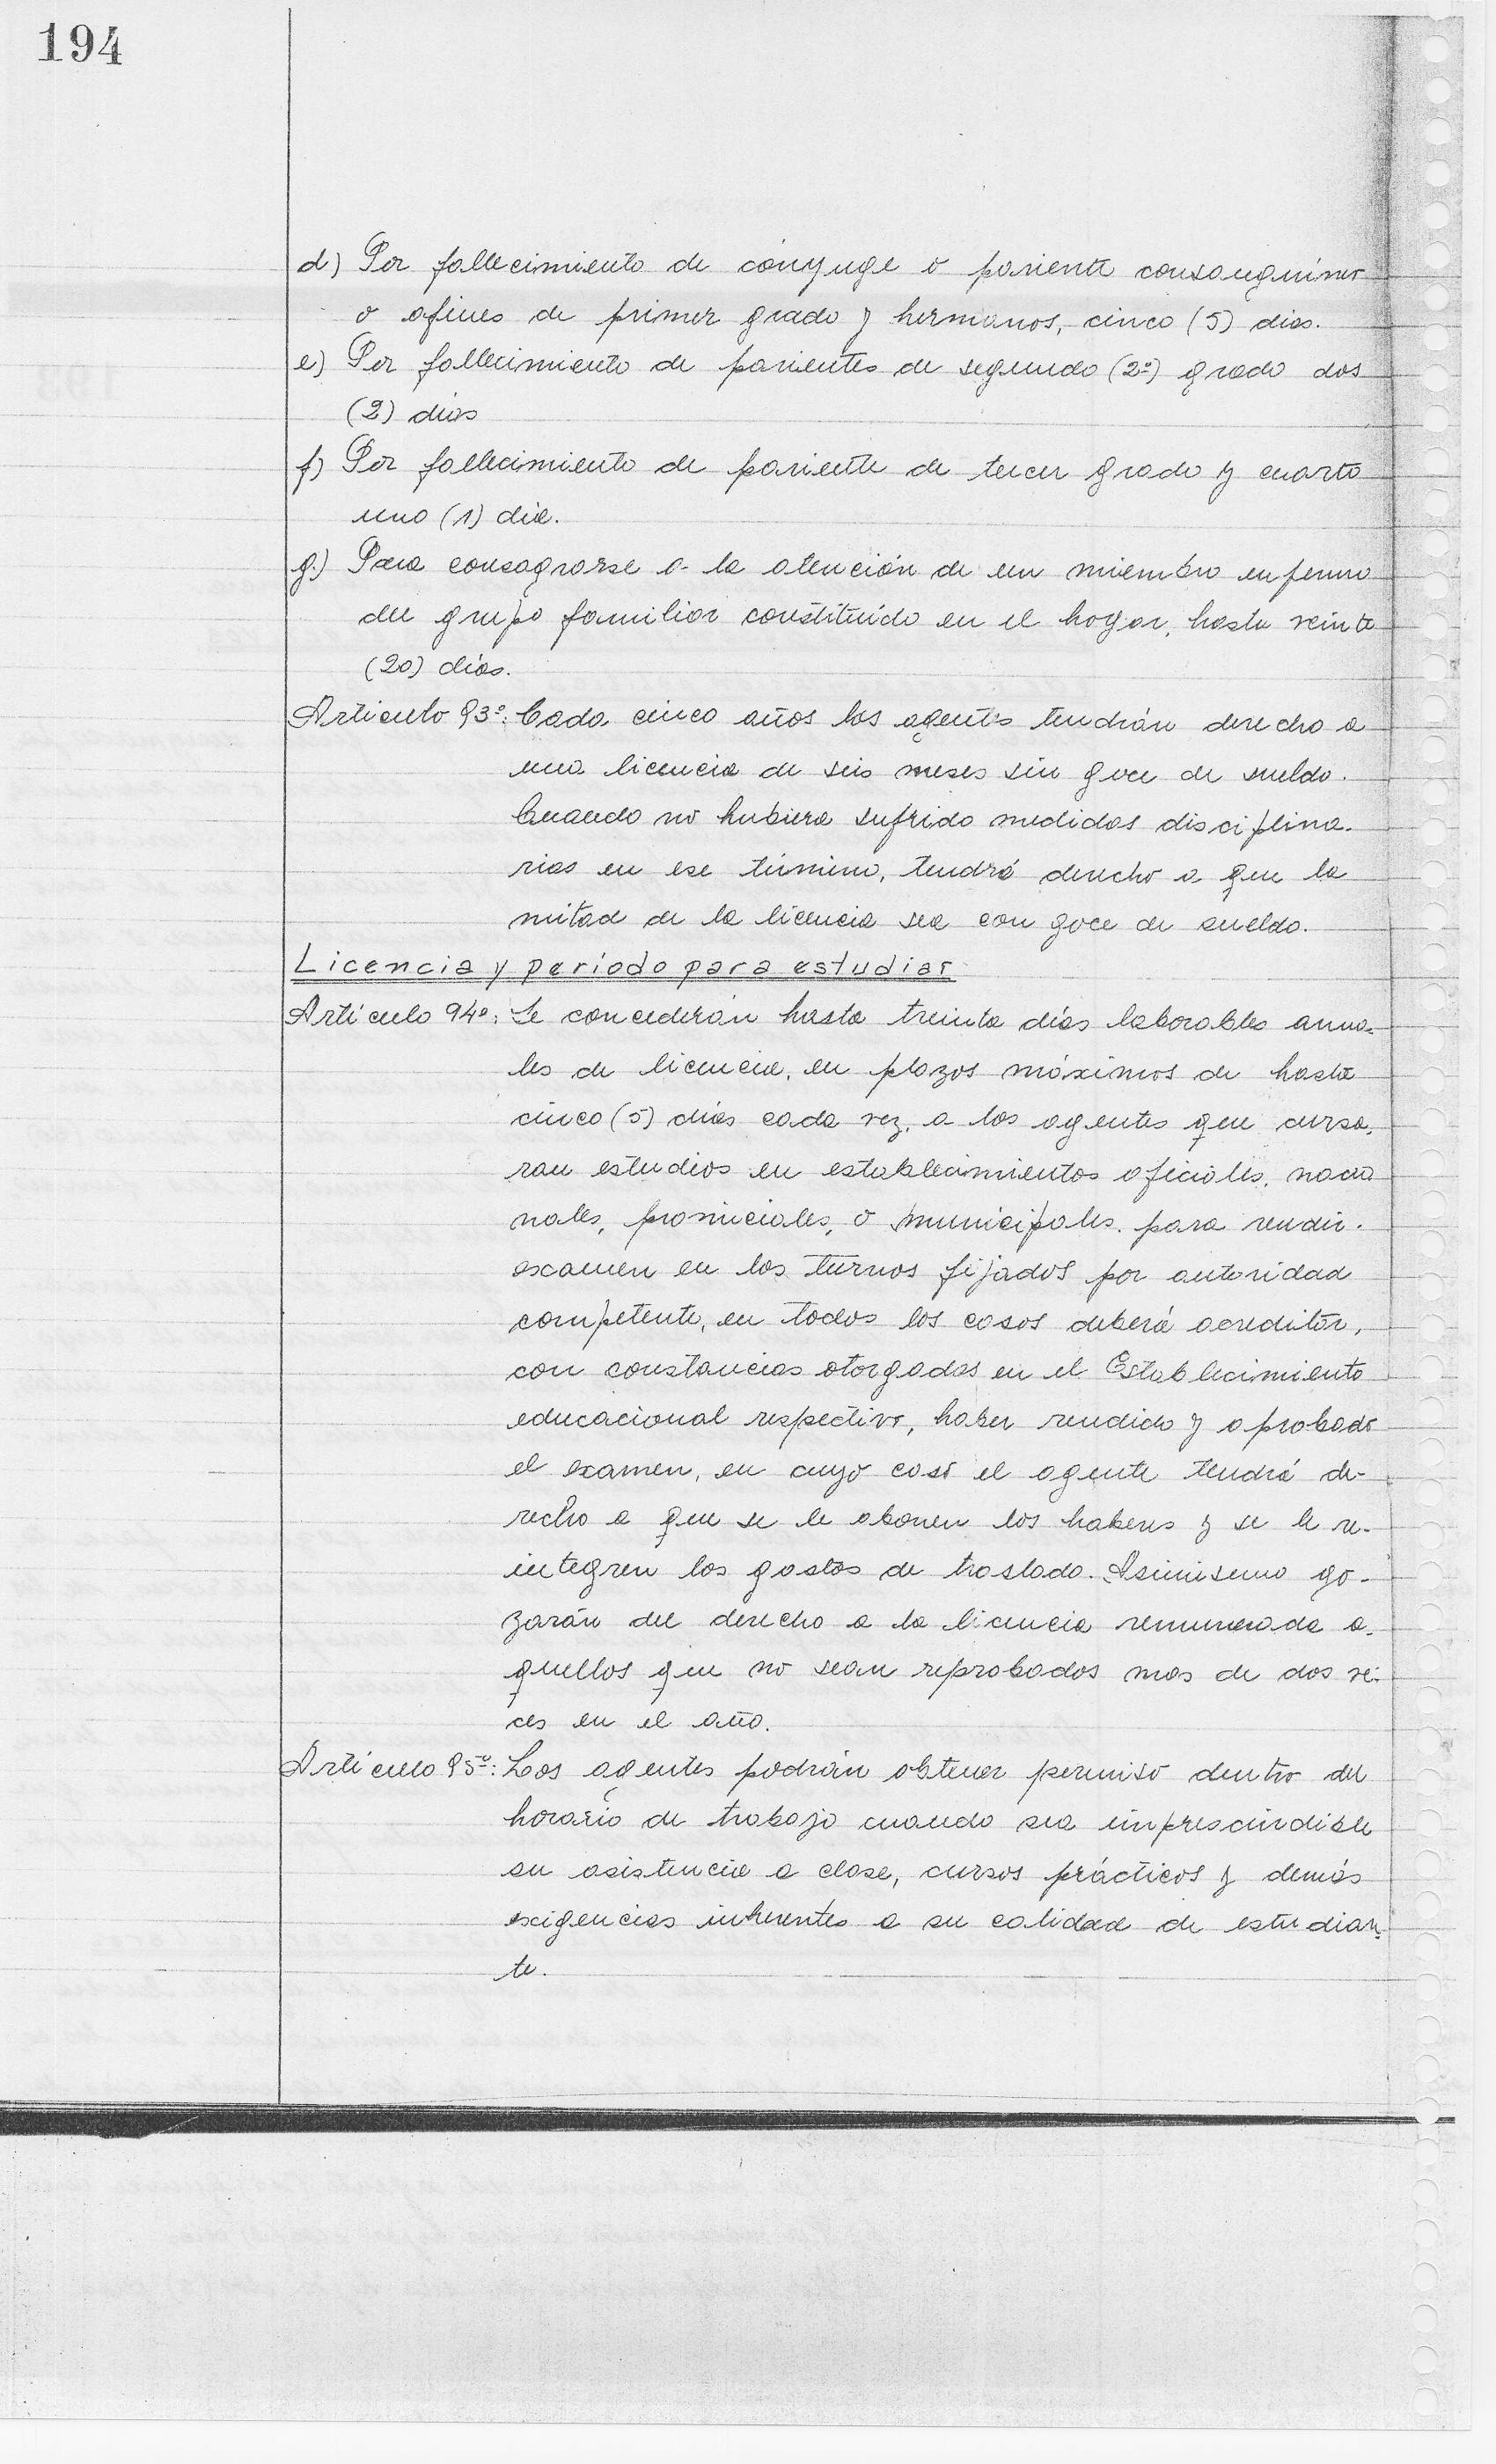 194
d) Por fallecimiento de cónyuge o pariente consanguineo
o afines de primer grado y hermanos, cinco (5) dias.
e) Por fallecimiento de parientes de segundo (2º) grado dos
(2) dias
f) Por fallecimiento de pariente de tercer grado y cuarto
uno (1) dia.
g) Para consagrarse a la atención de un miembro enfermo
del grupo familiar constituído en el hogar, hasta veinte
(20) días.
Articulo 93º: Cada cinco años los agentes tendrán derecho a
una licencia de seis meses sin goce de sueldo.
Cuando no hubiera sufrido medidas disciplina-
rias en ese término, tendrá derecho a que la
mitad de la licencia sea con goce de sueldo.
Licencia y período para estudiar
Artículo 94º: Se concederán hasta treinta días laborables anua-
les de licencia, en plazos máximos de hasta
cinco (5) días cada vez, a los agentes que cursa-
ran estudios en establecimientos oficiales, nacio
nales, provinciales, o municipales, para rendir
examen en los turnos fijados por autoridad
competente, en todos los casos deberá acreditar,
con constancias otorgadas en el Establecimiento
educacional respectivo, haber rendido y aprobado
el examen, en cuyo caso el agente tendrá de-
recho a que se le abonen los haberes y se le re-
integren los gastos de traslado. Asimismo go-
zarán del derecho a la licencia remunerada a-
quellos que no sean reprobados mas de dos ve-
ces en el año.
Artículo 95º: Los agentes podrán obtener permiso dentro del
horario de trabajo cuando sea imprescindible
su asistencia a clase, cursos prácticos y demás
exigencias inherentes a su calidad de estudian-
te.